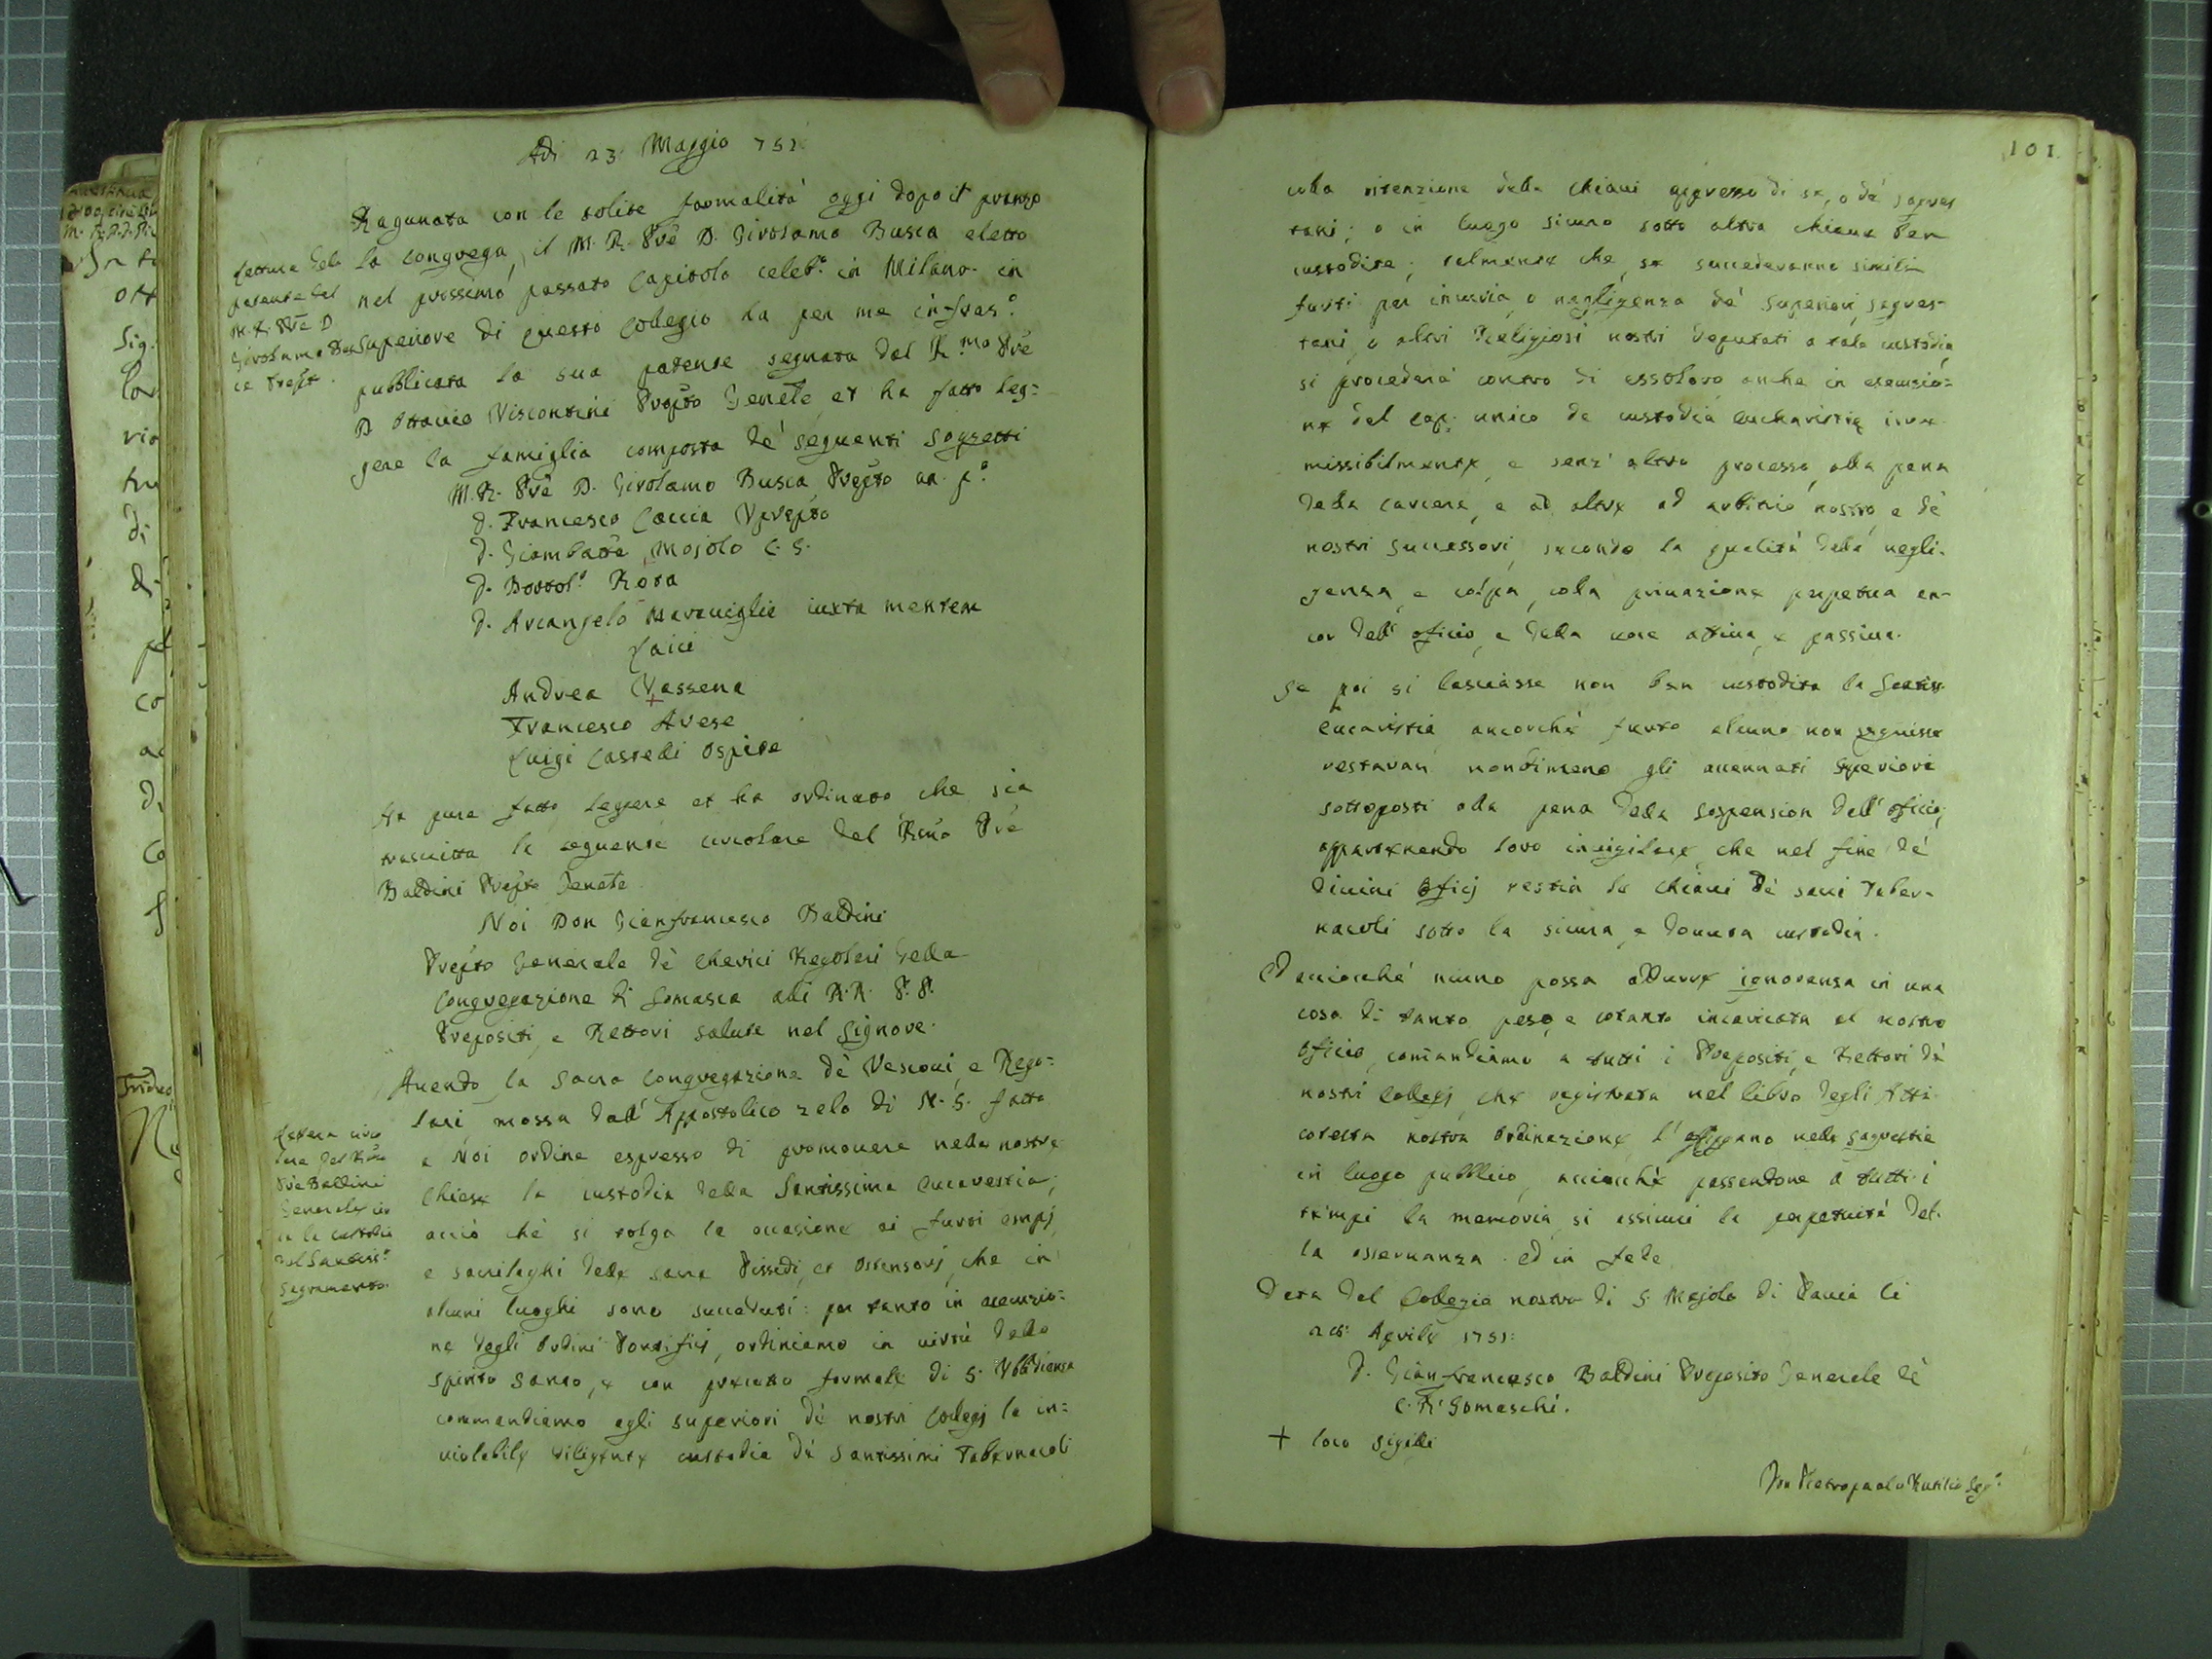 Adi 23 Maggio 751.
Ragunata con le solite formalità oggi dopo il pranzo
la congrega, il M. R. Prē D. Girolamo Busca eletto
nel prossimo passato Capitolo celeb.º in Milano in
Superiore di questo Collegio ha per me infras.º
pubblicata la sua patente segnata dal R.mo Prē
D. Ottavio Viscontini Prepto Genēle et ha fatto leg=
gere la famiglia composta de' seguenti soggetti
M. R. Prē D. Girolamo Busca Prepto an. pº.
d. Francesco Caccia Vprepto
d. Giambatta Mojolo C. S.
d. Bortol.º Rota
d. Arcangelo Maraviglie iuxta mentem
Laici
Andrea Vassena
Francesco Avese
Luigi Castedi Ospite
Ha pure fatto leggere et ha ordinato che sia
trascritta la seguente circolare del Rmo Prē
Baldini Prepto Genēle
Noi Don Gianfrancesco Baldini
Prepto Generale de' Cherici Regolari della
Congregazione di Somasca alli R.R. P.P.
Prepositi, e Rettori salute nel Signore.
Avendo la Sacra Congregazione de' Vescovi, e Rego=
lari mossa dall' Appostolico zelo di N. S. fatto
a Noi ordine espresso di promovere nelle nostre
Chiese la custodia della Santissima Eucarestia,
acciò che si tolga la occasione ai furti empj,
e sacrileghi delle sacre Pissidi, et Ostensorj, che in
alcuni luoghi sono succeduti: per tanto in esecuzio=
ne degli Ordini Pontificj, ordiniamo in virtù dello
Spirito Santo, e con precetto formale di S. Ubbidienza
commandiamo agli superiori de' nostri Collegj la in=
violabile diligente custodia de' Santissimi Tabernacoli
Lettura dela
patente del
M. R. Prē D.
Girolamo Bus
ca Prepto.
Lettera circo
lare del Rmo
Prē Baldini
Generale cir
ca la custodia
del Santiss.º
Sagramento.
101.
colla ritenzione delle chiavi appresso di se, o de' sagres
tani; o in luogo sicuro sotto altra chiave ben
custodite; talmente che, se succederanno simili
furti per incuria, o negligenza de' Superiori, sagres-
tani, o altri Religiosi nostri deputati a tale custodia,
si procederà contro di essoloro anche in esecuzio=
ne del cap. unico de custodia eucharistię irre
missibilmente, e senz' altro processo, alla pena
della carcere, e ad altre ad arbitrio nostro, e de'
nostri Successori, secondo la qualità della negli-
genza, e colpa, colla privazione perpetua an-
cor dell' oficio, e della voce attiva, e passiva.
Se poi si lasciasse non ben custodita la Santiss.
Eucaristia, ancorchè furto alcuno non seguisse
restaran nondimeno gli accennati Superiori
sottoposti alla pena della sospension dell' oficio,
appartenendo loro invigilare, che nel fine de'
divini Oficj restin le chiavi de' sacri Taber-
nacoli sotto la sicura, e dovuta custodia.
Ed acciocchè niuno possa addurre ignoranza in una
cosa di tanto peso, e cotanto incaricata al nostro
Oficio, comandiamo a tutti i Prepositi, e Rettori de'
nostri Collegj, che registrata nel libro degli Atti
cotesta nostra Ordinazione, l' affiggano nella Sagrestia
in luogo pubblico, acciocchè passandone a tutti i
tempi la memoria, si assicuri la perpetuità del-
la osservanza. ed in fede
Data dal Collegio nostro di S. Majolo di Pavia li
Aprile 1751:
D. Gianfrancesco Baldini Preposito Generale de'
C. R. Somaschi.
+ loco sigilli
Don Pietropaolo Rutilio Seg.º